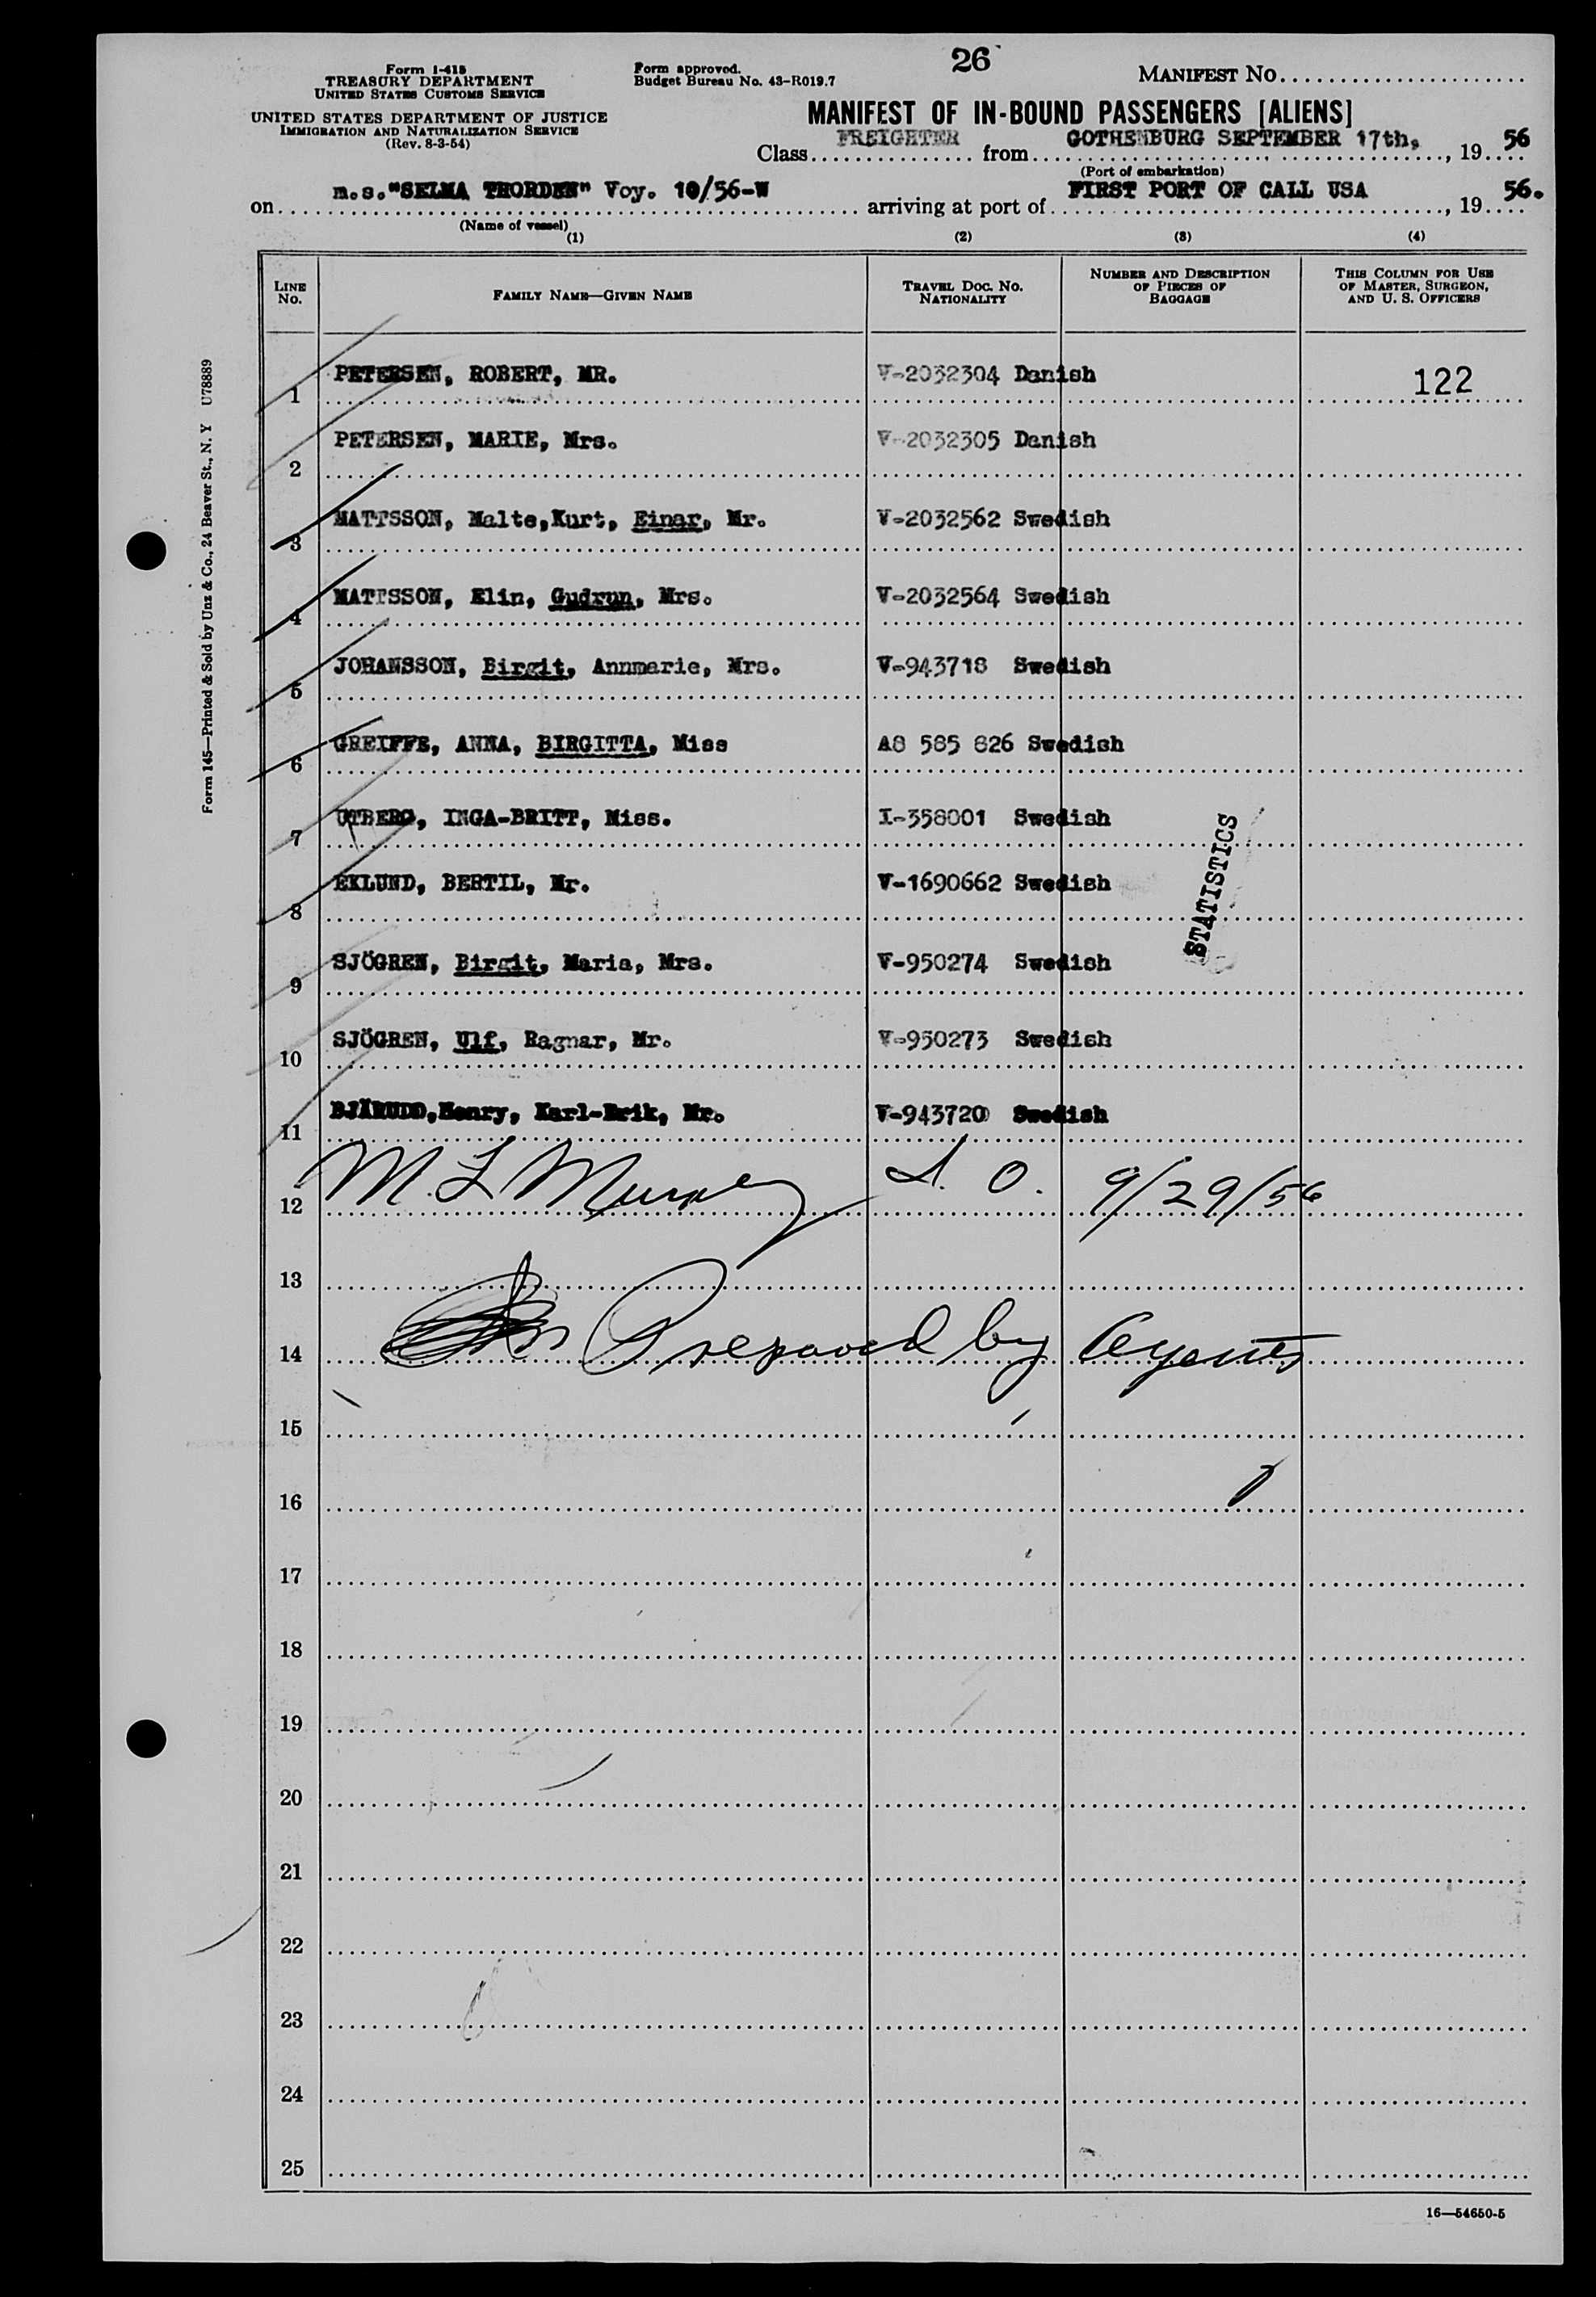 26
Form I-418
TREASURY DEPARTMENT
UNITED STATES CUSTOMS SERVICE
UNITED STATES DEPARTMENT OF JUSTICE
IMMIGRATION AND NATURALIZATION SERVICE
(Rev. 8-3-54)
Form approved.
Budget Bureau No. 43-R019.7
MANIFEST NO.
MANIFEST OF IN-BOUND PASSENGERS [ALIENS]
Class FREIGHTER from GOTHENBURG SEPTEMBER 17th, , 19 56
(Port of embarkation)
on m.s."SELMA THORDEN" Voy. 10/56-W arriving at port of FIRST PORT OF CALL USA , 19 56.
(Name of vessel)
(1) (2) (3) (4)
LINE NO. FAMILY NAME—GIVEN NAME TRAVEL DOC. NO. NATIONALITY NUMBER AND DESCRIPTION OF PIECES OF BAGGAGE THIS COLUMN FOR USE OF MASTER, SURGEON, AND U. S. OFFICERS
1 PETERSEN, ROBERT, MR. V-2032304 Danish 122
2 PETERSEN, MARIE, Mrs. V-2032305 Danish
3 MATTSSON, Malte,Kurt, Einar, Mr. V-2032562 Swedish
4 MATTSSON, Elin, Gudrun, Mrs. V-2032564 Swedish
5 JOHANSSON, Birgit, Annmarie, Mrs. V-943718 Swedish
6 GREIFFE, ANNA, BIRGITTA, Miss A8 585 826 Swedish
7 UTBERG, INGA-BRITT, Miss. I-358001 Swedish
8 EKLUND, BERTIL, Mr. V-1690662 Swedish
9 SJÖGREN, Birgit, Maria, Mrs. V-950274 Swedish
10 SJÖGREN, Ulf, Ragnar, Mr. V-950273 Swedish
11 BJÄRUDD,Henry, Karl-Erik, Mr. V-943720 Swedish
STATISTICS
12 M. L Murphy I. O. 9/29/56
13
14 Prepared by Agents
15
16
17
18
19
20
21
22
23
24
25
16—54650-5
Form 145—Printed & Sold by Unz & Co., 24 Beaver St., N. Y U78889